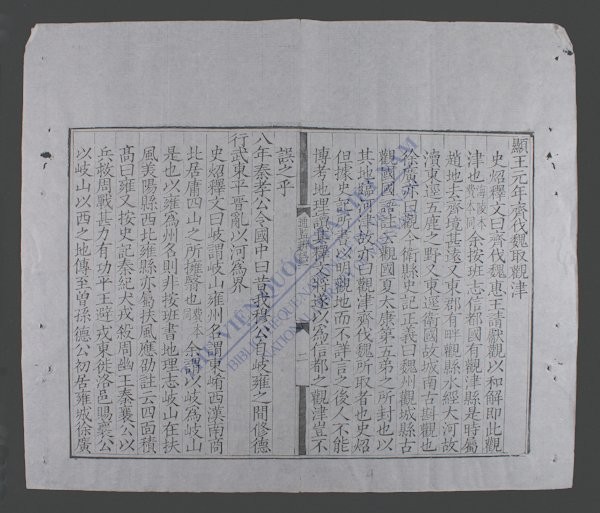 顯王元年齊伐魏取觀津
史炤釋文曰齊伐魏惠王請獻觀以和解即此觀
津也余按班志信都國有觀津縣是時屬
趙地去齊境甚遠又東郡有畔觀縣水經大河故
瀆東逕五鹿之野又東逕衛國故城南古斟觀也
徐廣亦曰觀今衛縣史記正義曰魏州觀城縣古
觀國國語註觀國夏太康第五弟之所封也以
其地臨河津故亦曰觀津齊伐魏所取者也史炤
但據史記年表以明觀地而不詳言之後人不能
博考地理謂其釋文將遂以為信都之觀津豈不
誤之乎
八年秦孝公令國中曰昔我穆公自岐雍之間修德
行武東平晉亂以河為界
史炤釋文曰岐謂岐山雍州名謂東崤西漢南商
北居庸四山之所擁翳也余謂以岐為岐山
是也以雍為州名則非按班書地理志岐山在扶
風美陽縣西北雍縣亦屬扶風應劭註云四面積
高曰雍又按史記秦紀犬戎殺周幽王秦襄公以
兵救周戰甚力有功平王避戎東徙洛邑賜襄公
以岐山以西之地傳至曾孫德公初居雍城徐廣
二
THƯ VIỆN QUỐC GIA VIỆT NAM